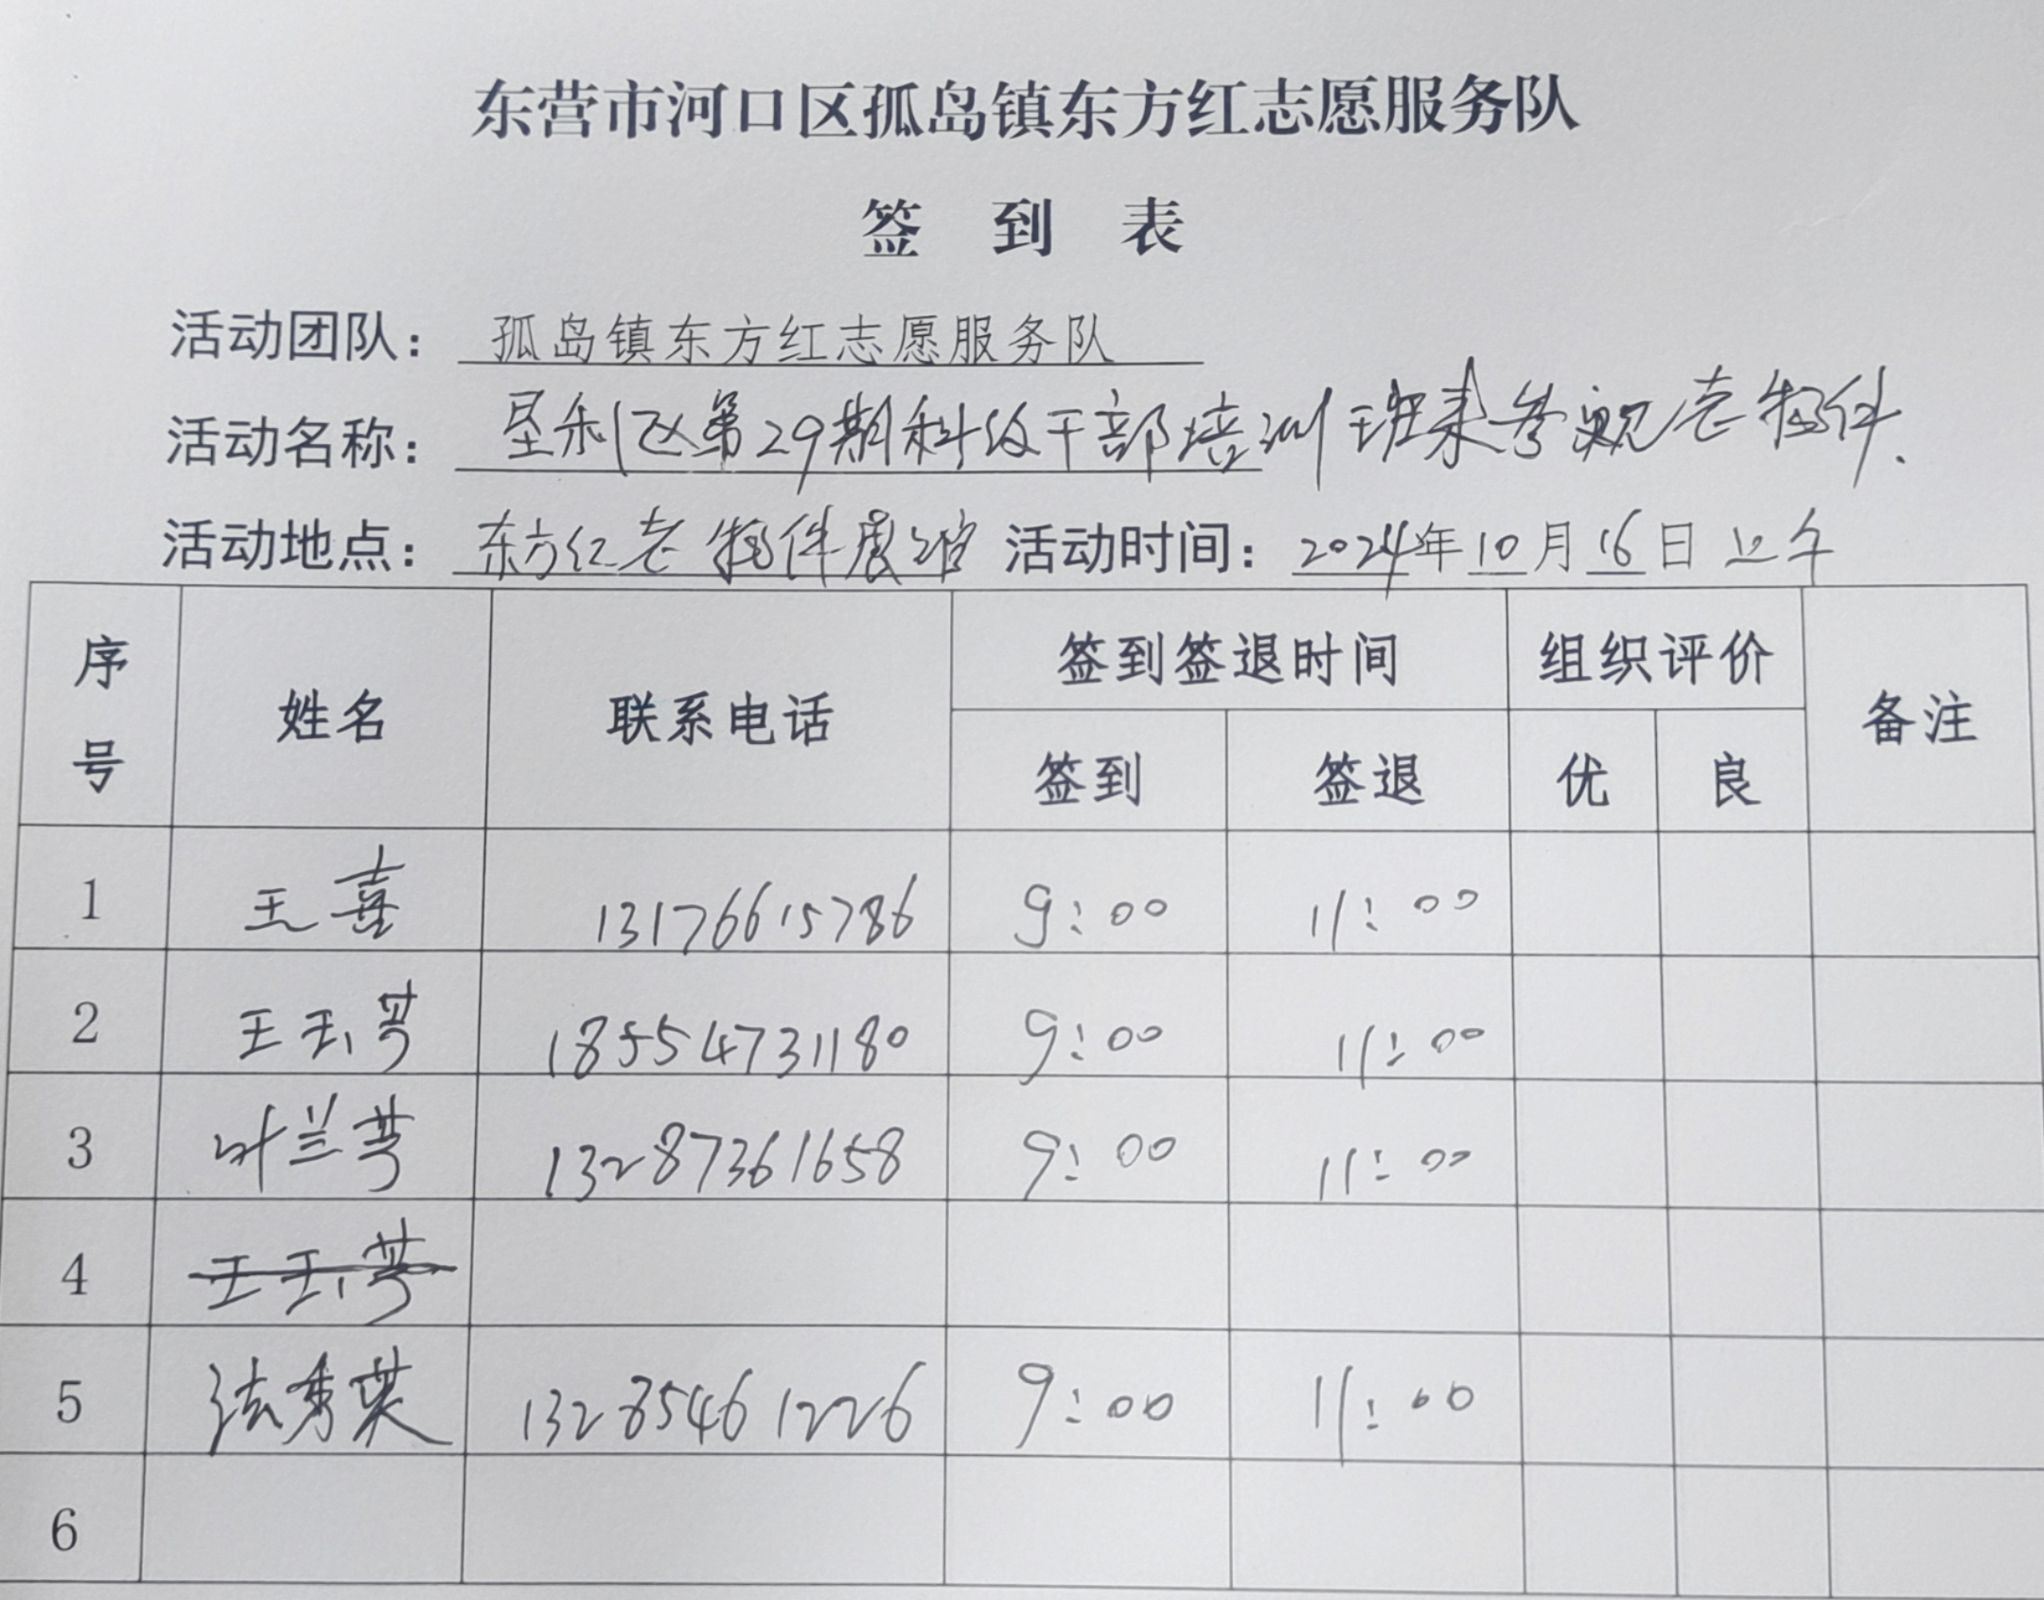 东营市河口区孤岛镇东方红志愿服务队
签 到 表
活动团队：孤岛镇东方红志愿服务队
活动名称：垦利区第29期科级干部培训班来参观老物件.
活动地点：东方红老物件展馆 活动时间：2024年10月16日上午
序号 姓名 联系电话 签到签退时间 组织评价 备注
签到 签退 优 良
1 王喜 13176615786 9:00 11:00
2 王玉芳 18554731180 9:00 11:00
3 叶兰芳 13287361658 9:00 11:00
4 王玉芳
5 法秀英 13285461226 9:00 11:00
6